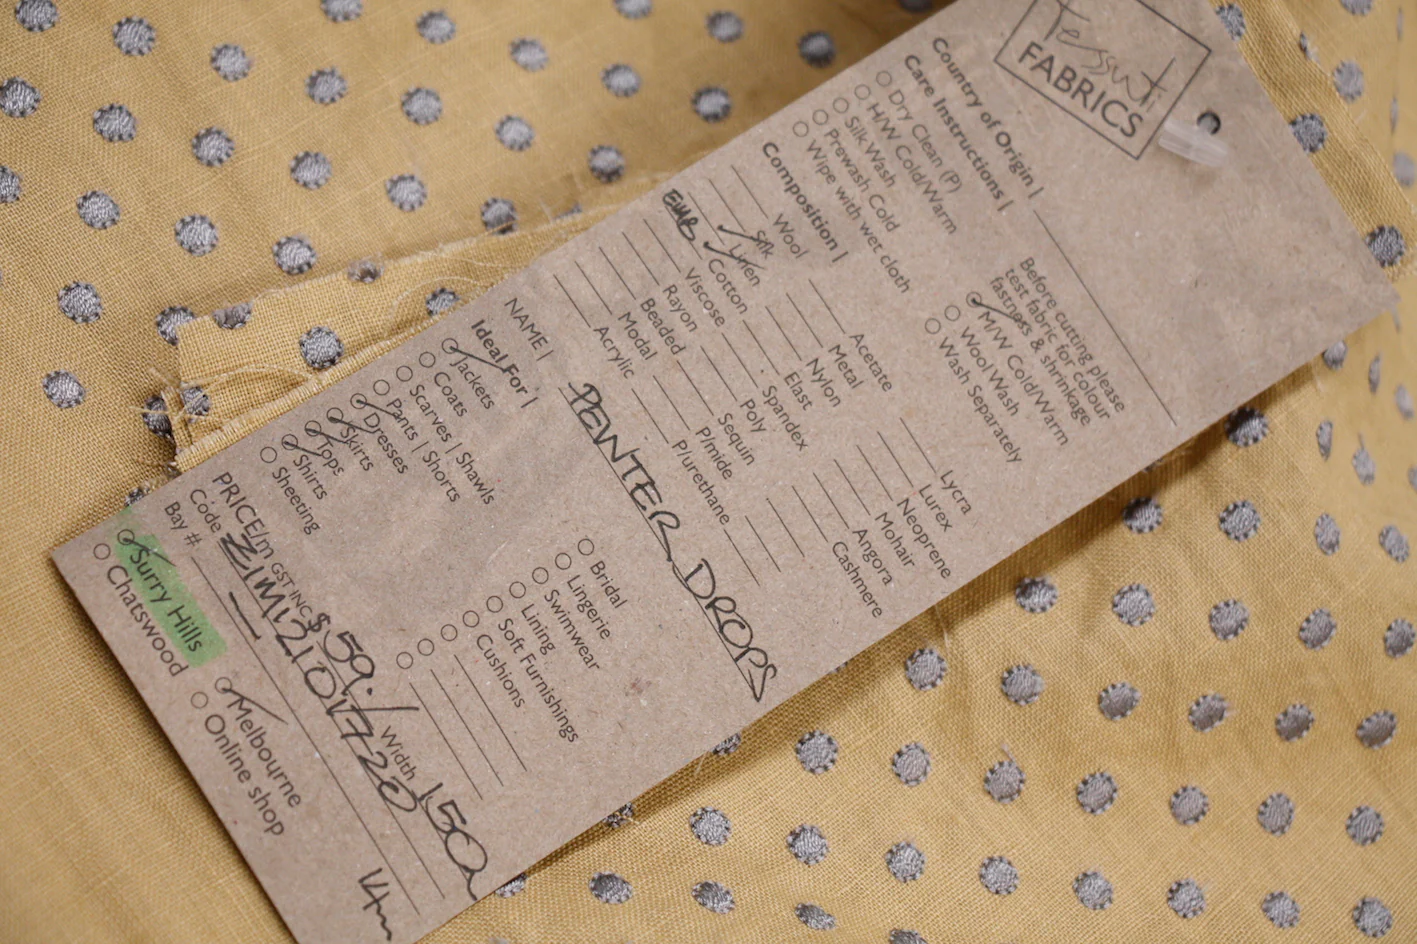 Tessuti
FABRICS
Country of Origin |
Care Instructions |
Dry Clean (P)
H/W Cold/Warm
Silk Wash
Prewash Cold
Wipe with wet cloth
Before cutting please
test fabric for colour
fastness & shrinkage
M/W Cold/Warm
Wool Wash
Wash Separately
Composition |
Wool
Silk
Linen
EMB Cotton
Viscose
Rayon
Beaded
Modal
Acrylic
Acetate
Metal
Nylon
Elast
Spandex
Poly
Sequin
P/mide
P/urethane
Lycra
Lurex
Neoprene
Mohair
Angora
Cashmere
NAME | PEWTER DROPS
Ideal For |
Jackets
Coats
Scarves | Shawls
Pants | Shorts
Dresses
Skirts
Tops
Shirts
Sheeting
Bridal
Lingerie
Swimwear
Lining
Soft Furnishings
Cushions
PRICE/m GST INC $59./ Width 150
Code ZIM121017720
Bay # — 14m
Surry Hills
Chatswood
Melbourne
Online shop